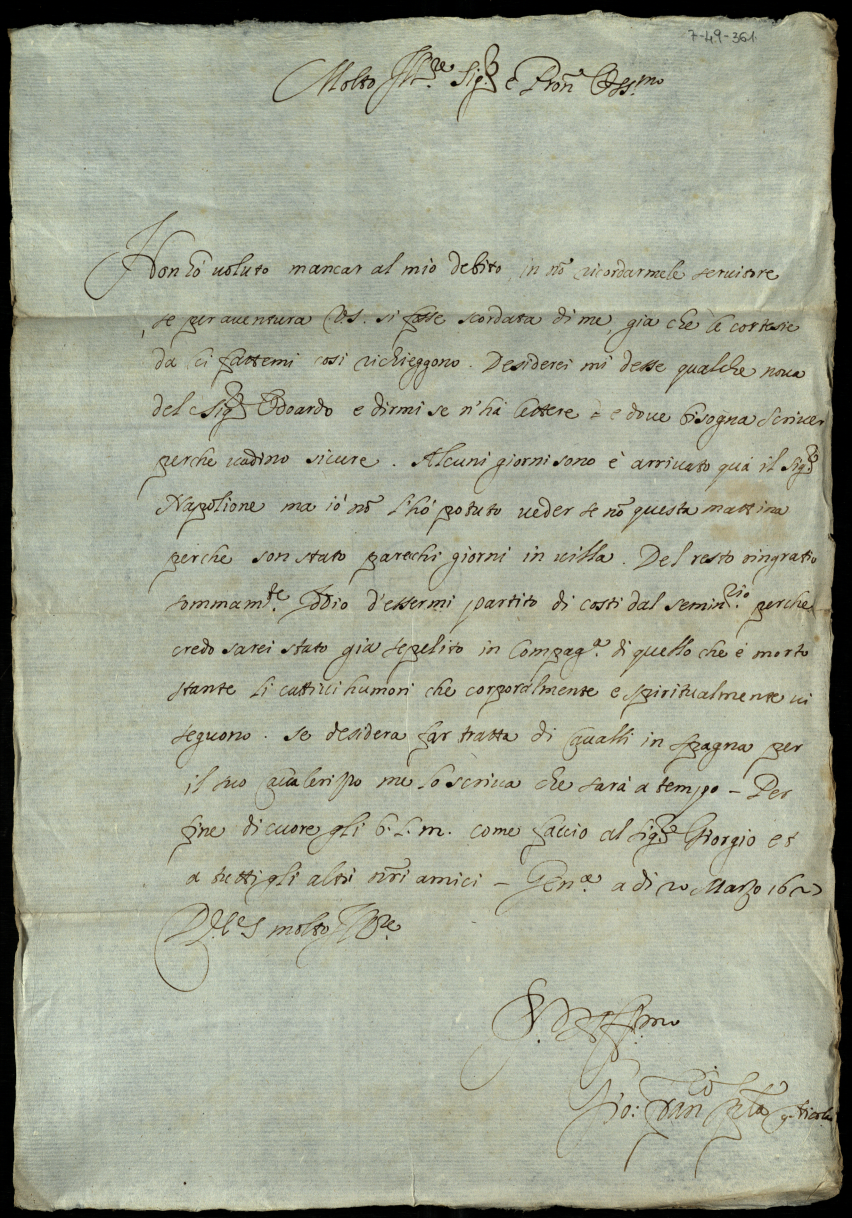 7-49-361
Molto Ill.re Sig.r e Pron Oss.mo
Non hò voluto mancar al mio debito in nõ ricordarmele servitore
se per aventura V.S. si fosse scordata di me, già che le cortesie
da lei fattemi cosi richieggono. Desiderei mi desse qualche nova
del Sig.r Edoardo e dirmi se n'hà lettere e dove bisogna scriver
perche vadino sicure. Alcuni giorni sono è arrivato quà il Sig.r
Napolione ma iò nõ l'hò potuto veder se nõ questa mattina
perche son stato parechi giorni in villa. Del resto ringratio
sommam.te Iddio d'essermi partito di costi dal semin.rio perche
credo sarei stato già sepelito in Compag.a di quello che è morto
stante li cattivi humori che corporalmente e spiritualmente vi
seguono. Se desidera far tratta di cavalli in Spagna per
il suo me lo scriva che sarà a tempo – Per
fine di cuore gli b. l. m. come faccio al Sig.r Giorgio et
a tutti gli altri nri amici – Gen.a a di 20 Marzo
D. V. S. molto Ill.re
S.
Gio: Fran.co